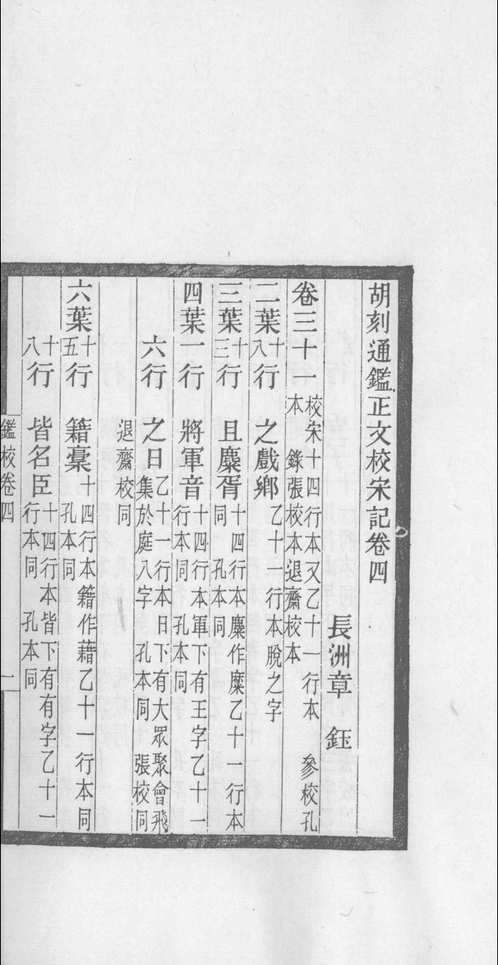 胡刻通鑑正文校宋記卷四
長洲章　鈺
卷三十一校宋十四行本又乙十一行本　參校孔
本　錄張校本退齋校本
二葉十八行　之戲鄉乙十一行本脫之字
三葉十三行　且麋胥十四行本麋作糜乙十一行本
同　孔本同
四葉一行　將軍音十四行本軍下有王字乙十一
行本同　孔本同
六行　之日乙十一行本日下有大眾聚會飛
集於庭八字　孔本同　張校同
退齋校同
六葉十五行　籍稾十四行本籍作藉乙十一行本同
孔本同
十八行　皆名臣十四行本皆下有有字乙十一
行本同　孔本同
鑑校卷四
一